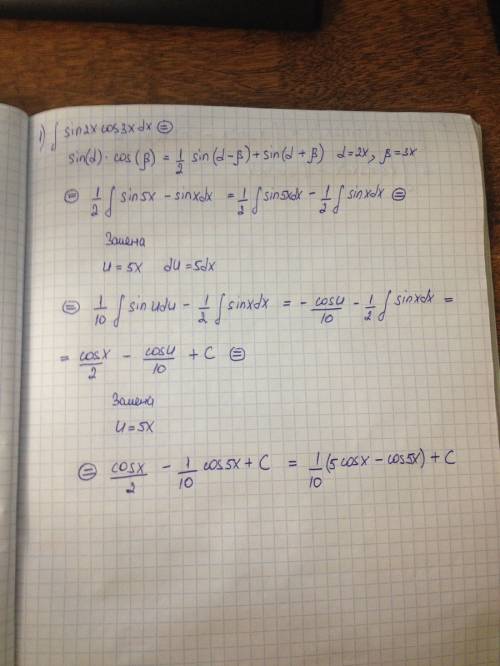 1) ∫ sin2x cos3x dx ⊜
sin(α)·cos(β) = 1/2 sin(α-β)+sin(α+β) α=2x, β=3x
⊜ 1/2 ∫ sin5x - sinxdx = 1/2 ∫ sin5xdx - 1/2 ∫ sinxdx ⊜
Замена
u=5x du=5dx
⊜ 1/10 ∫ sin u du - 1/2 ∫ sinxdx = - cosu/10 - 1/2 ∫ sinxdx =
= cosx/2 - cosu/10 + C ⊜
Замена
u=5x
⊜ cosx/2 - 1/10 cos5x + C = 1/10 (5cosx - cos5x) + C